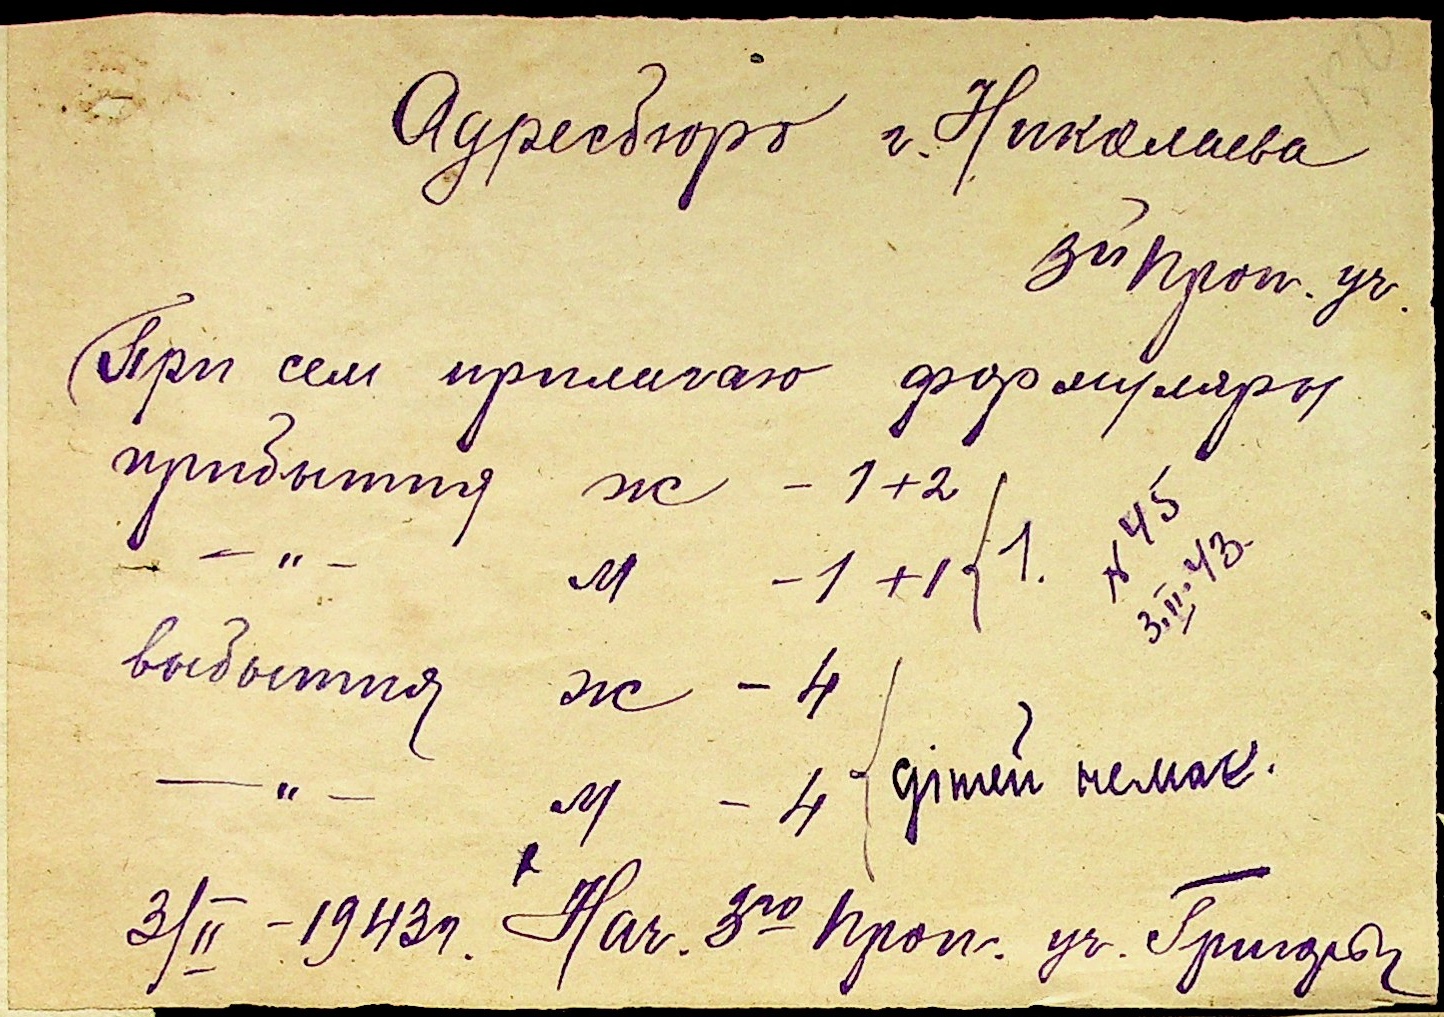 Адресбюро г. Николаева
3й Проп. уч.
При сем прилагаю формуляры
прибыття ж - 1+2
— " — м - 1 + 1 } 1.
N 45
3.II.43
выбыття ж - 4
— " — м - 4 } дітей немає.
3/II - 1943г. Нач. 3го Проп. уч.